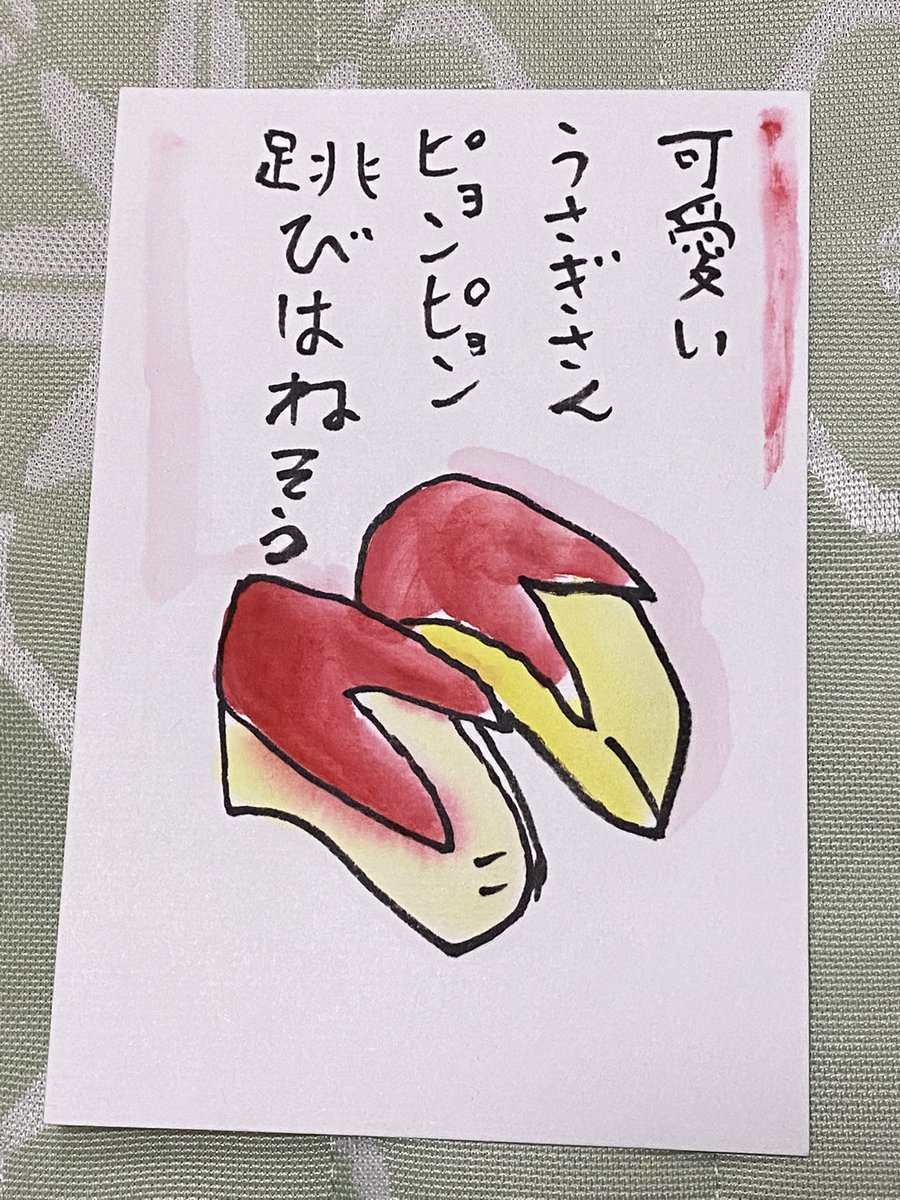 可愛い
うさぎさん
ピョンピョン
跳びはねそう